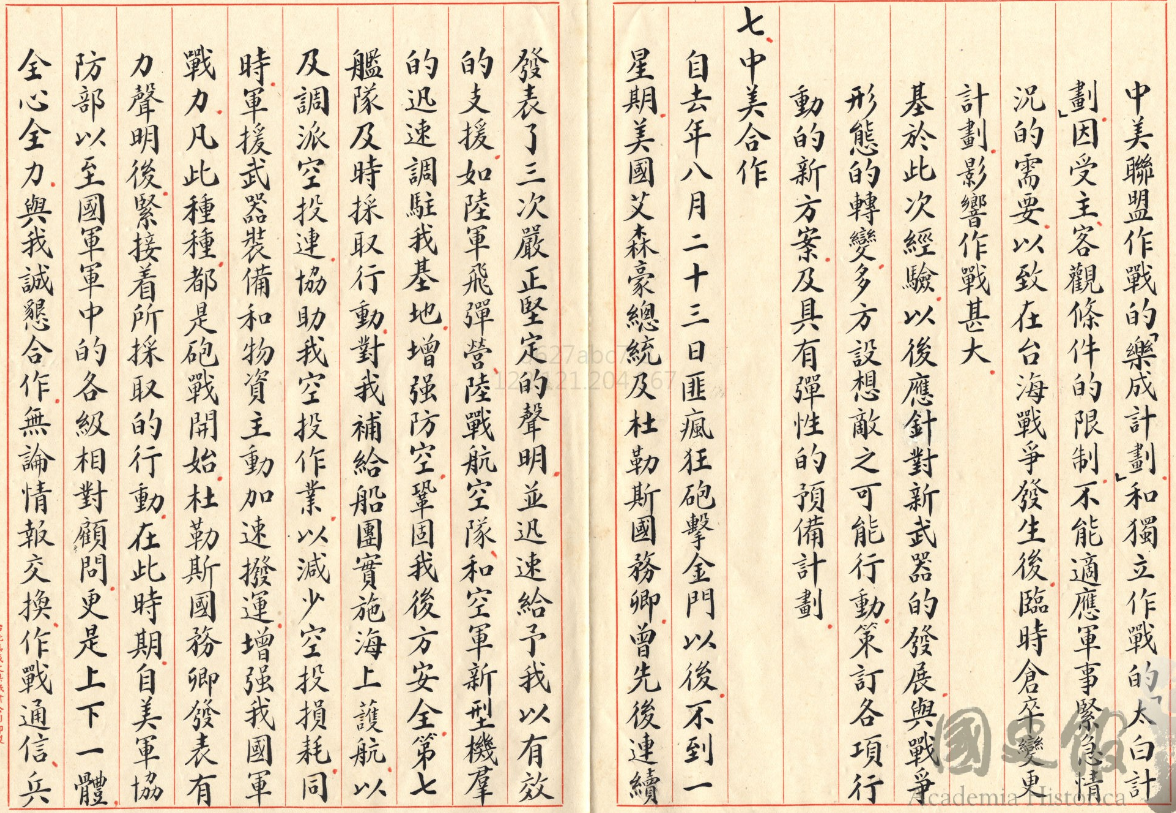 中美聯盟作戰的「樂成計劃」和獨立作戰的「太白計
劃」因受主、客觀條件的限制、不能適應軍事緊急情
況的需要、以致在台海戰爭發生後、臨時倉卒變更
計劃、影響作戰甚大、
基於此次經驗、以後應針對新武器的發展、與戰爭
形態的轉變、多方設想敵之可能行動、策訂各項行
動的新方案、及具有彈性的預備計劃、
七、中美合作
自去年八月二十三日匪瘋狂砲擊金門以後、不到一
星期、美國艾森豪總統及杜勒斯國務卿、曾先後連續
發表了三次嚴正堅定的聲明、並迅速給予我以有效
的支援、如陸軍飛彈營、陸戰航空隊、和空軍新型機羣
的迅速調駐我基地、增强防空、鞏固我後方安全、第七
艦隊及時採取行動、對我補給船團實施海上護航、以
及調派空投連、協助我空投作業、以減少空投損耗、同
時、軍援武器裝備和物資、主動加速撥運、增强我國軍
戰力、凡此種種、都是砲戰開始、杜勒斯國務卿發表有
力聲明後、緊接着所採取的行動、在此時期、自美軍協
防部以至國軍軍中的各級相對顧問、更是上下一體、
全心全力、與我誠懇合作、無論情報交換、作戰通信、兵
國史館
Academia Historica